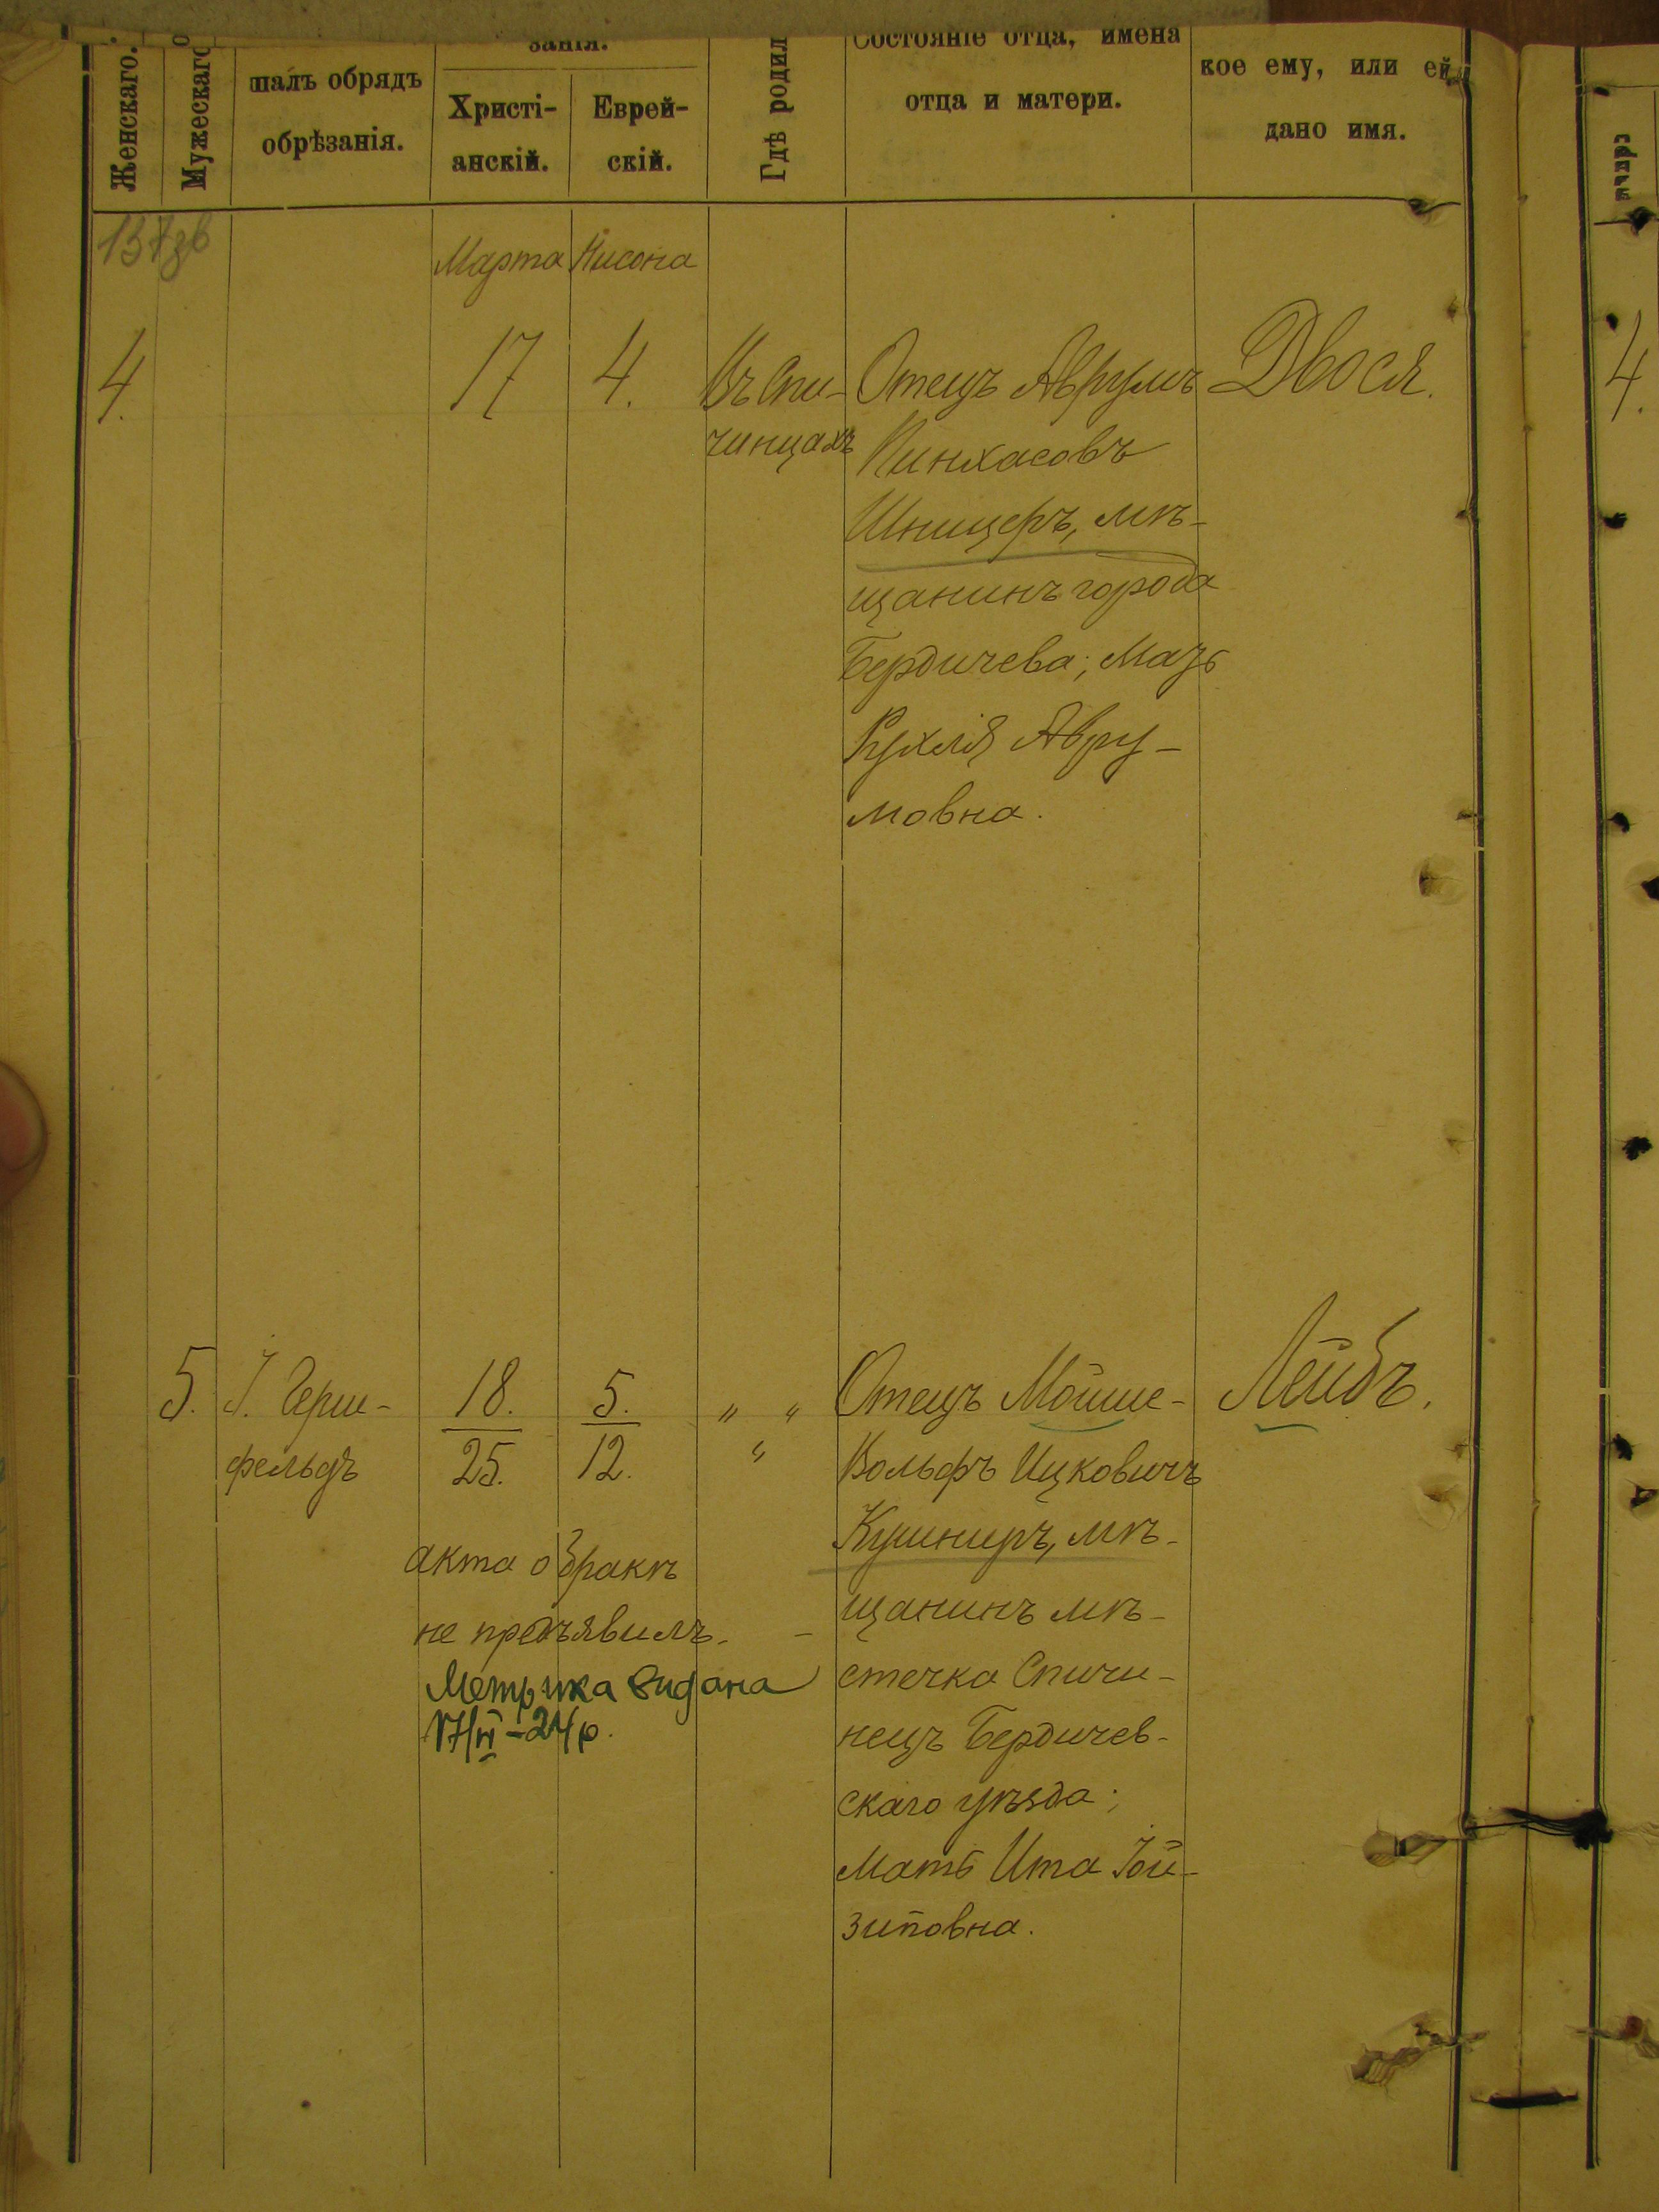 Женскаго.
Мужескаго
шалъ обрядъ
обрѣзанія.
занія.
Христі-
анскій.
Еврей-
скій.
Гдѣ родил
Состояніе отца, имена
отца и матери.
кое ему, или ей
дано имя.
Марта Нисона
4.
17
4.
Въ Спи-
чинцахъ
Отецъ Аврумъ
Пинхасовъ
Шницеръ, мѣ-
щанинъ города
Бердичева; Мать
Рухля Авру-
мовна.
Двося.
4.
5.
І. Герш-
фельдъ
18.
25.
5.
12.
" "
"
Отецъ Мойше-
Вольфъ Ицковичъ
Кушниръ, мѣ-
щанинъ мѣ-
стечка Спичи-
нецъ Бердичев-
скаго уѣзда;
Мать Ита Іой-
зиповна.
Лейбъ.
акта о бракѣ
не предъявилъ.
Метрика видана
17/VI-24 р.